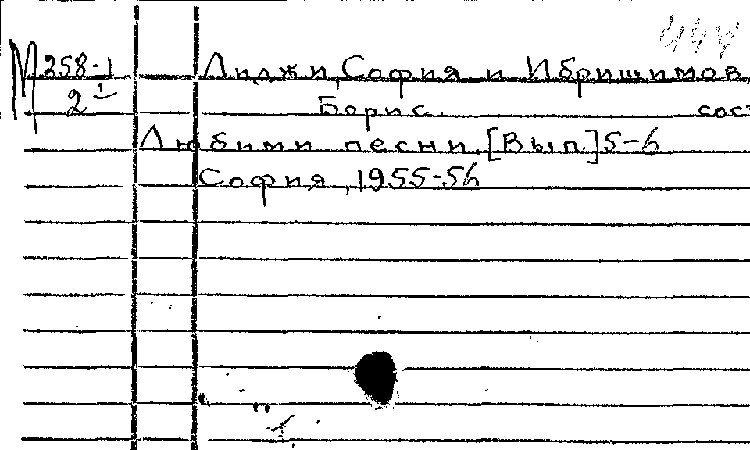 М 258-1 Лиджи, София и Ибришимов,
2 Борис. сост
Любими песни. [Вып] 5-6
София, 1955-56